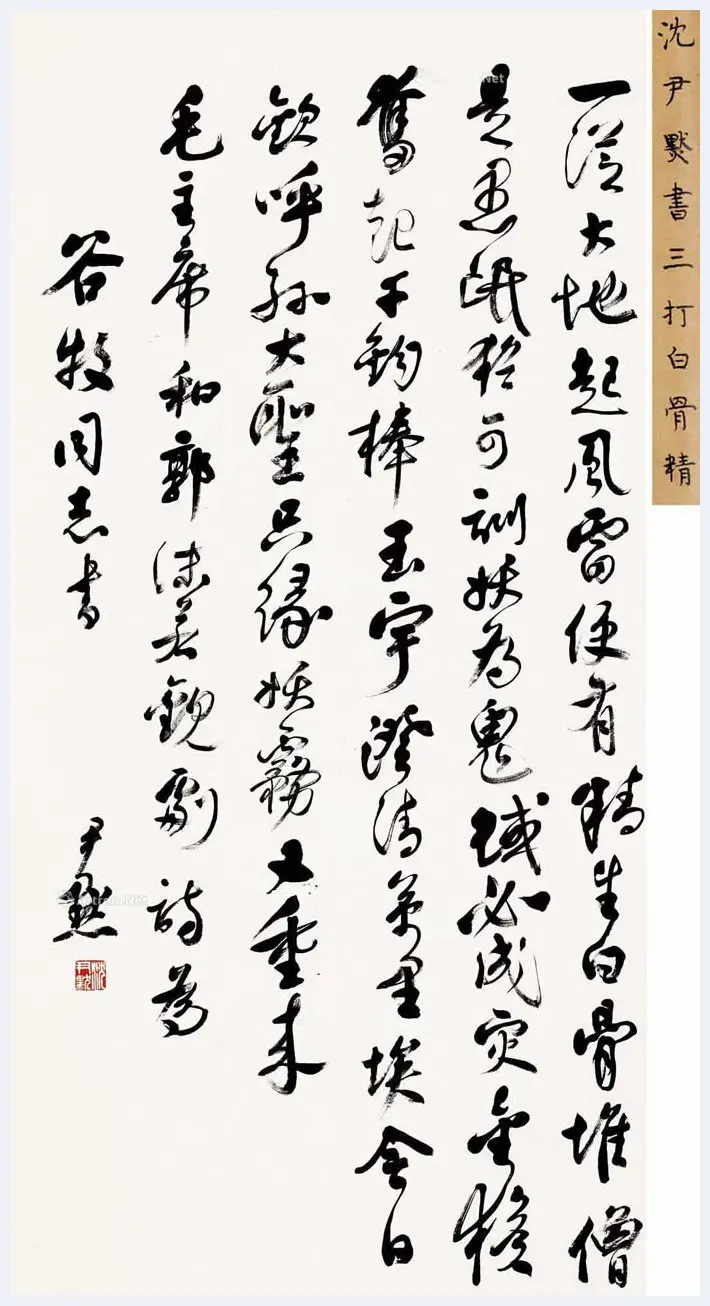 沈尹默書三打白骨精
一從大地起風雷便有精生白骨堆僧
是愚氓猶可訓妖為鬼蜮必成災金猴
奮起千鈞棒玉宇澄清萬里埃今日
歡呼孫大聖只緣妖霧又重來
毛主席和郭沫若觀劇詩為
谷牧同志書
尹默
沈尹默